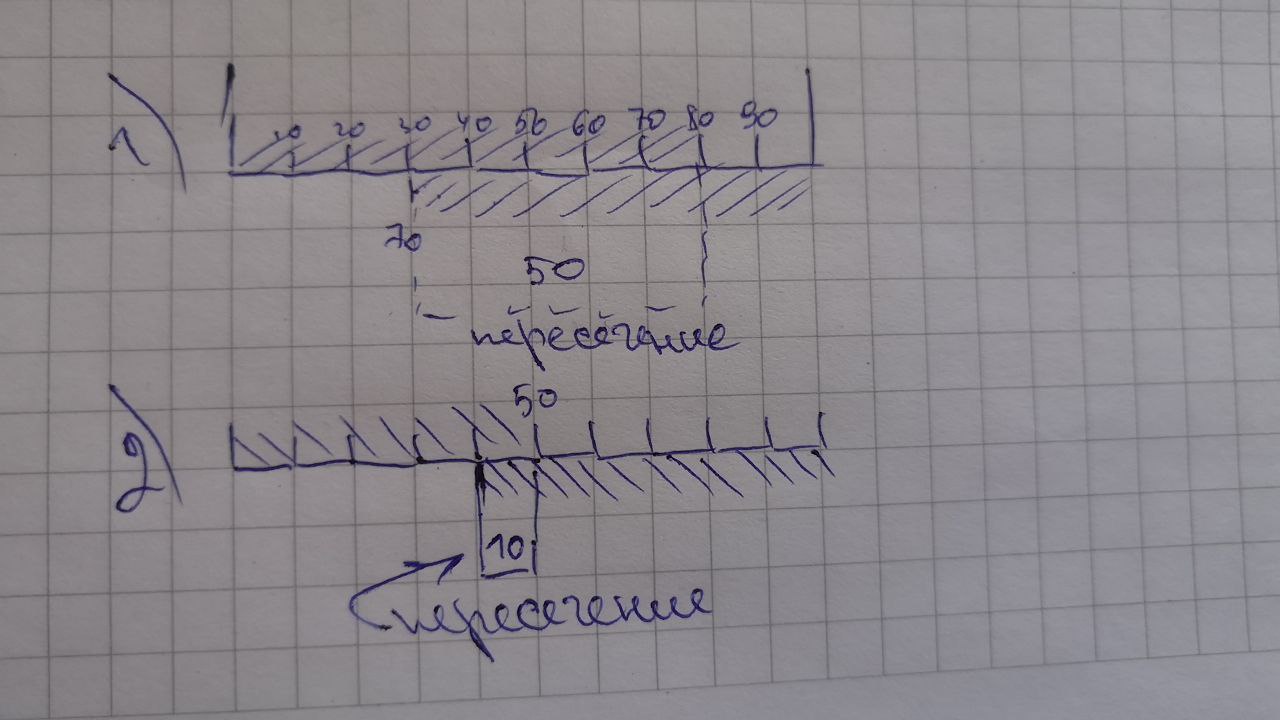 1)
10 20 30 40 50 60 70 80 90
70
50
пересечение
2)
50
10
пересечение